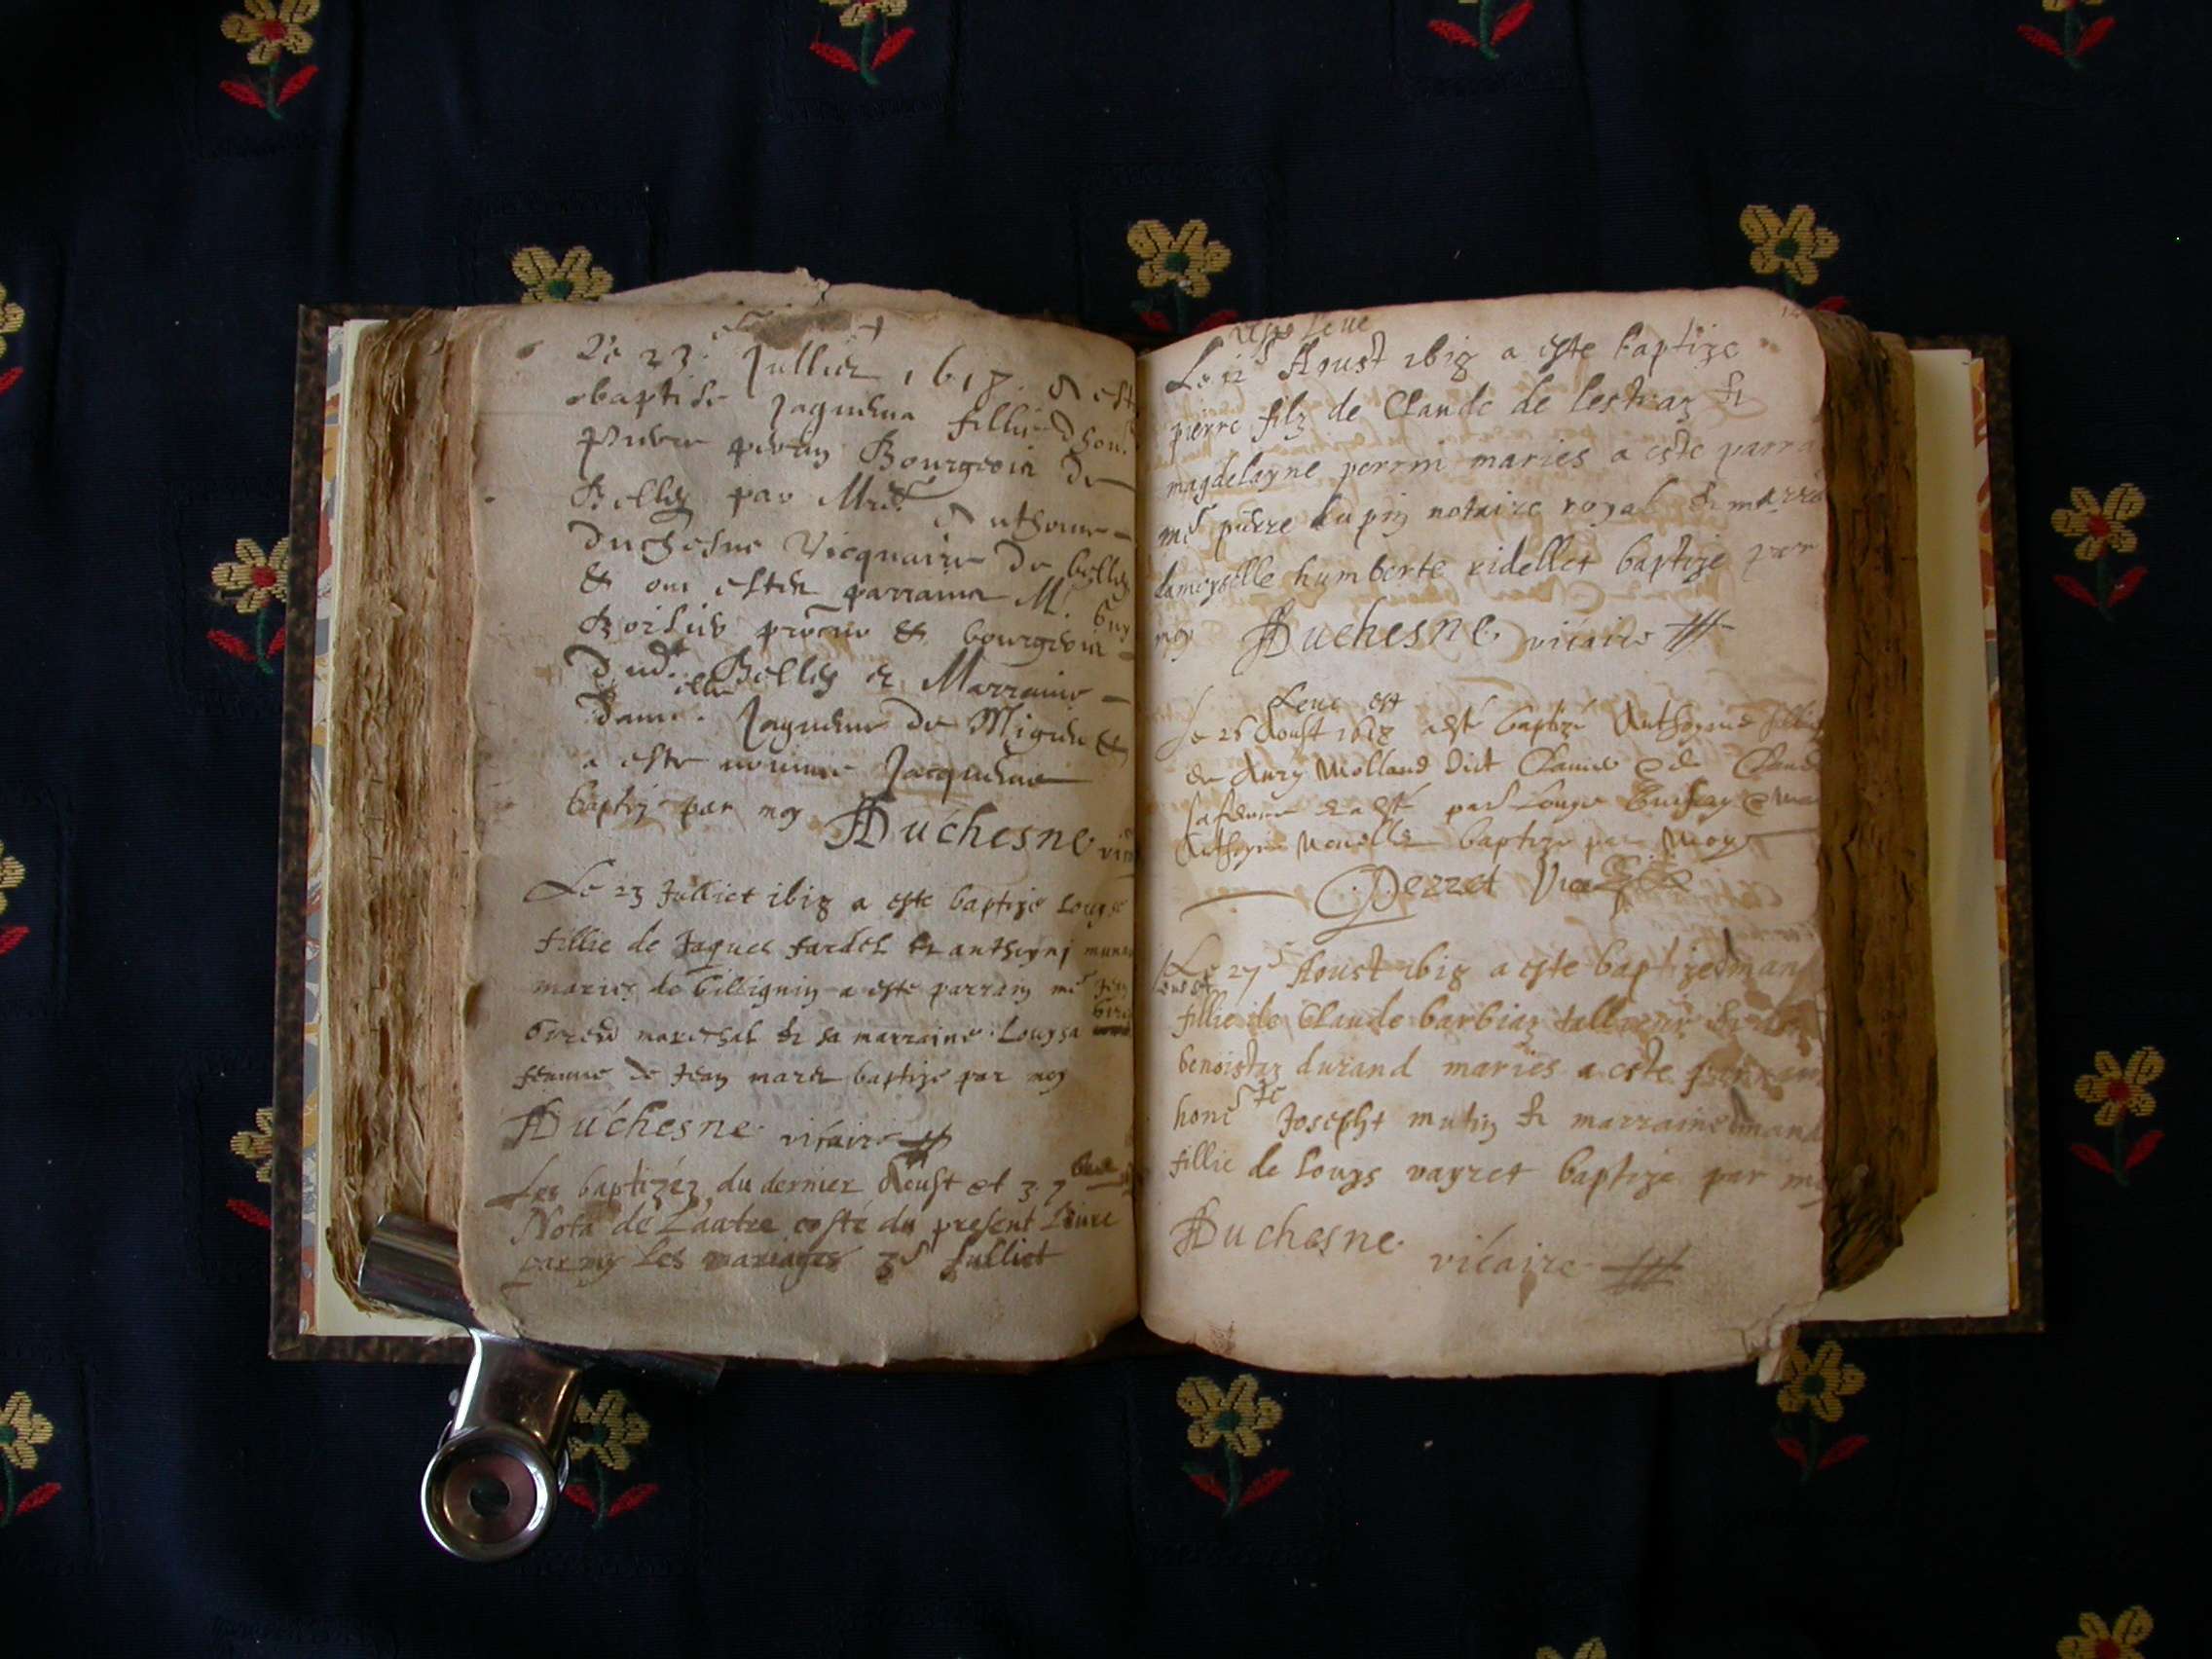 Le 23e Julliet 1618. A est
baptisée Jaquema fillie d'hon.
pierre perrin Bourgeoix de
Belley par Mre Anthoine
duchesne Vicquaire de belley
& ont estez parrain M. Guy
procur & bourgeoix
dud. Belley et Marraine
damlle. Jaqueme de Migieu &
a esté nommée Jacquema
baptizé par moy Duchesne vic
Le 23 Julliet 1618 a este baptize Louyse
fillie de Jaques fardel et anthoynj
maries de billignin a este parrain me Jean
mareschal et sa marraine Louysa
femme de Jean baptize par moy
Duchesne vicaire
Les baptizéz du dernier Aoust et 3. 7bre
Nota de L'autre costé du present Livre
parmy Les mariages 3e Julliet
Leue
Le 12e Aoust 1618 a este baptize
pierre filz de Claude de lestraz et
magdelayne perrin maries a este parra
me pierre dupin notaire royal et marr
damoyselle humberte ridellet baptize par
moy Duchesne vicaire
Leue est
Le 26 Aoust 1618 a esté baptizé Anthoyne fillie
de Aury Molland dict Clavier & de Claud
sa femme et a esté par Louys
Anthoyne baptize par Moy
Perret Vic
Le 27e Aoust 1618 a este baptize
fillie de Claude barbiaz
benoistaz durand maries a este parrain
honeste Joseph mutin et marraine
fillie de louys vayret baptize par mo
Duchesne vicaire